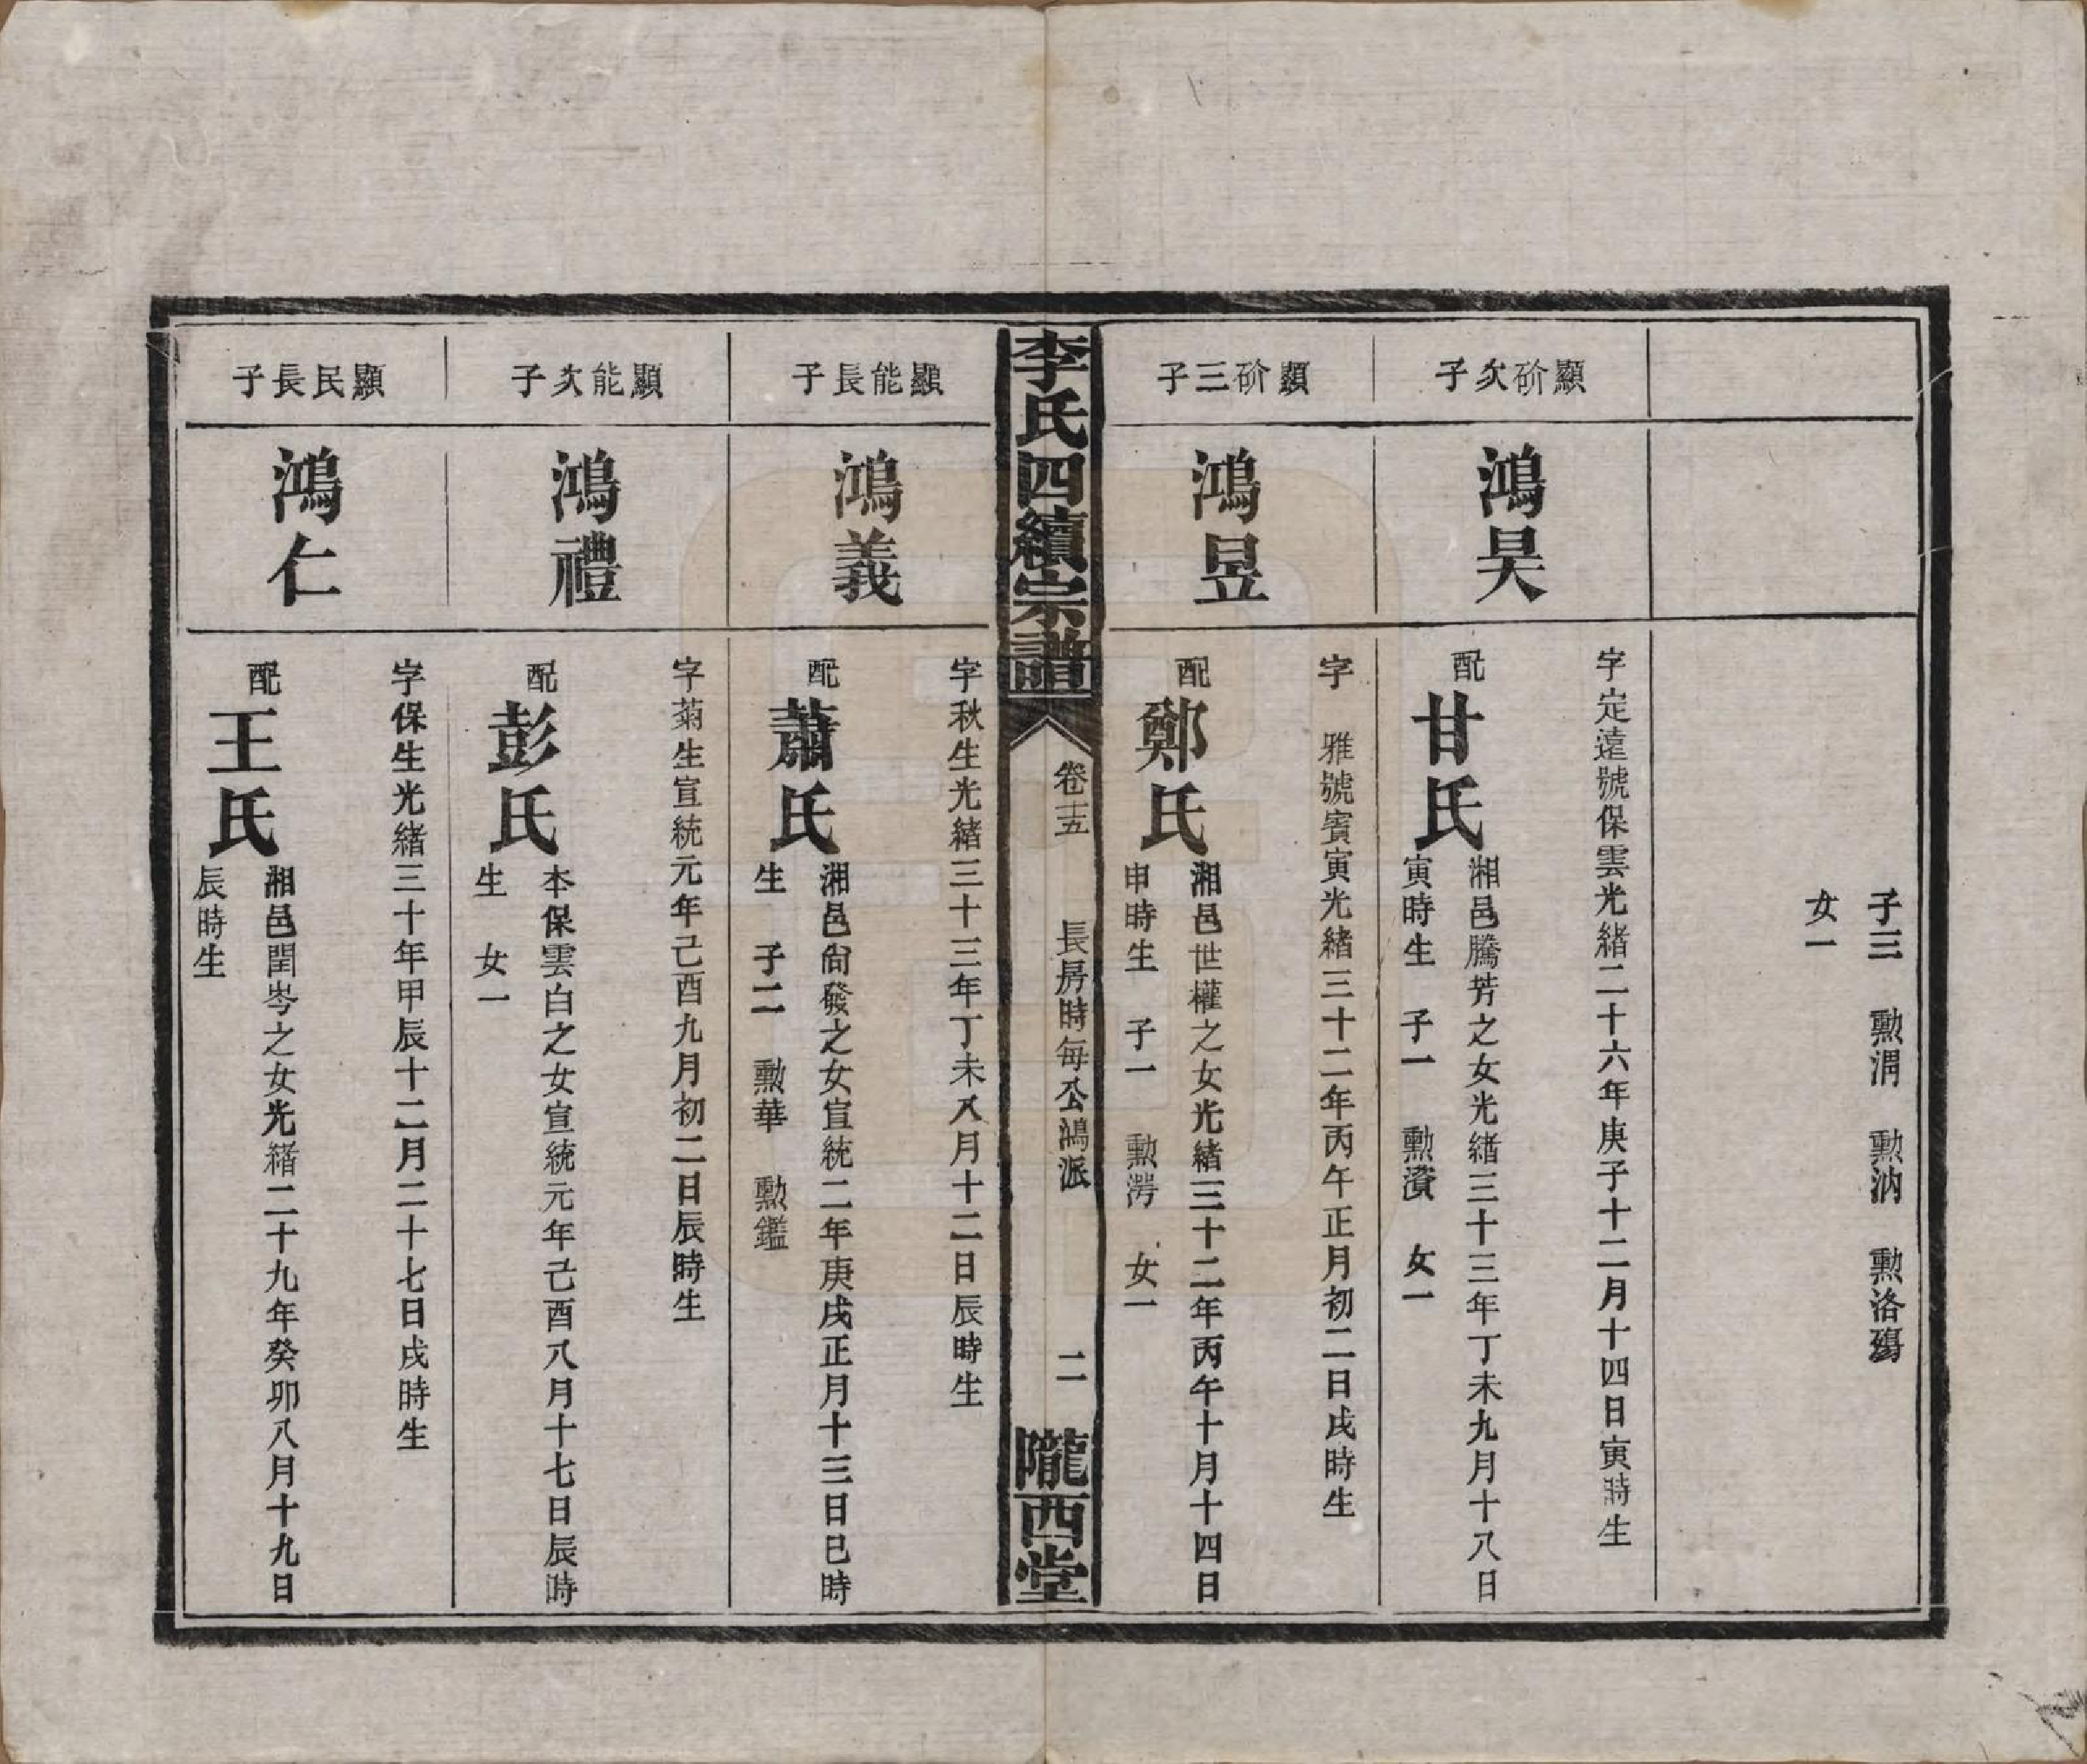 子三　勲渭　勲汭　勲洛殤
女一
顯砎次子
鴻昊
字定遠號保雲光緒二十六年庚子十二月十四日寅時生
配甘氏
湘邑騰芳之女光緒三十三年丁未九月十八日
寅時生　子一　勲濱　女一
顯砎三子
鴻昱
字　雅號賓寅光緒三十二年丙午正月初二日戌時生
配鄭氏
湘邑世權之女光緒三十二年丙午十月十四日
申時生　子一　勲澇　女一
李氏四續宗譜
卷十五
長房時每公鴻派
二
隴西堂
顯能長子
鴻義
字秋生光緒三十三年丁未八月十二日辰時生
配蕭氏
湘邑尙發之女宣統二年庚戌正月十三日巳時
生　子二　勲華　勲鑑
顯能次子
鴻禮
字菊生宣統元年己酉九月初二日辰時生
配彭氏
本保雲白之女宣統元年己酉八月十七日辰時
生　女一
顯民長子
鴻仁
字保生光緒三十年甲辰十二月二十七日戌時生
配王氏
湘邑閏岑之女光緒二十九年癸卯八月十九日
辰時生